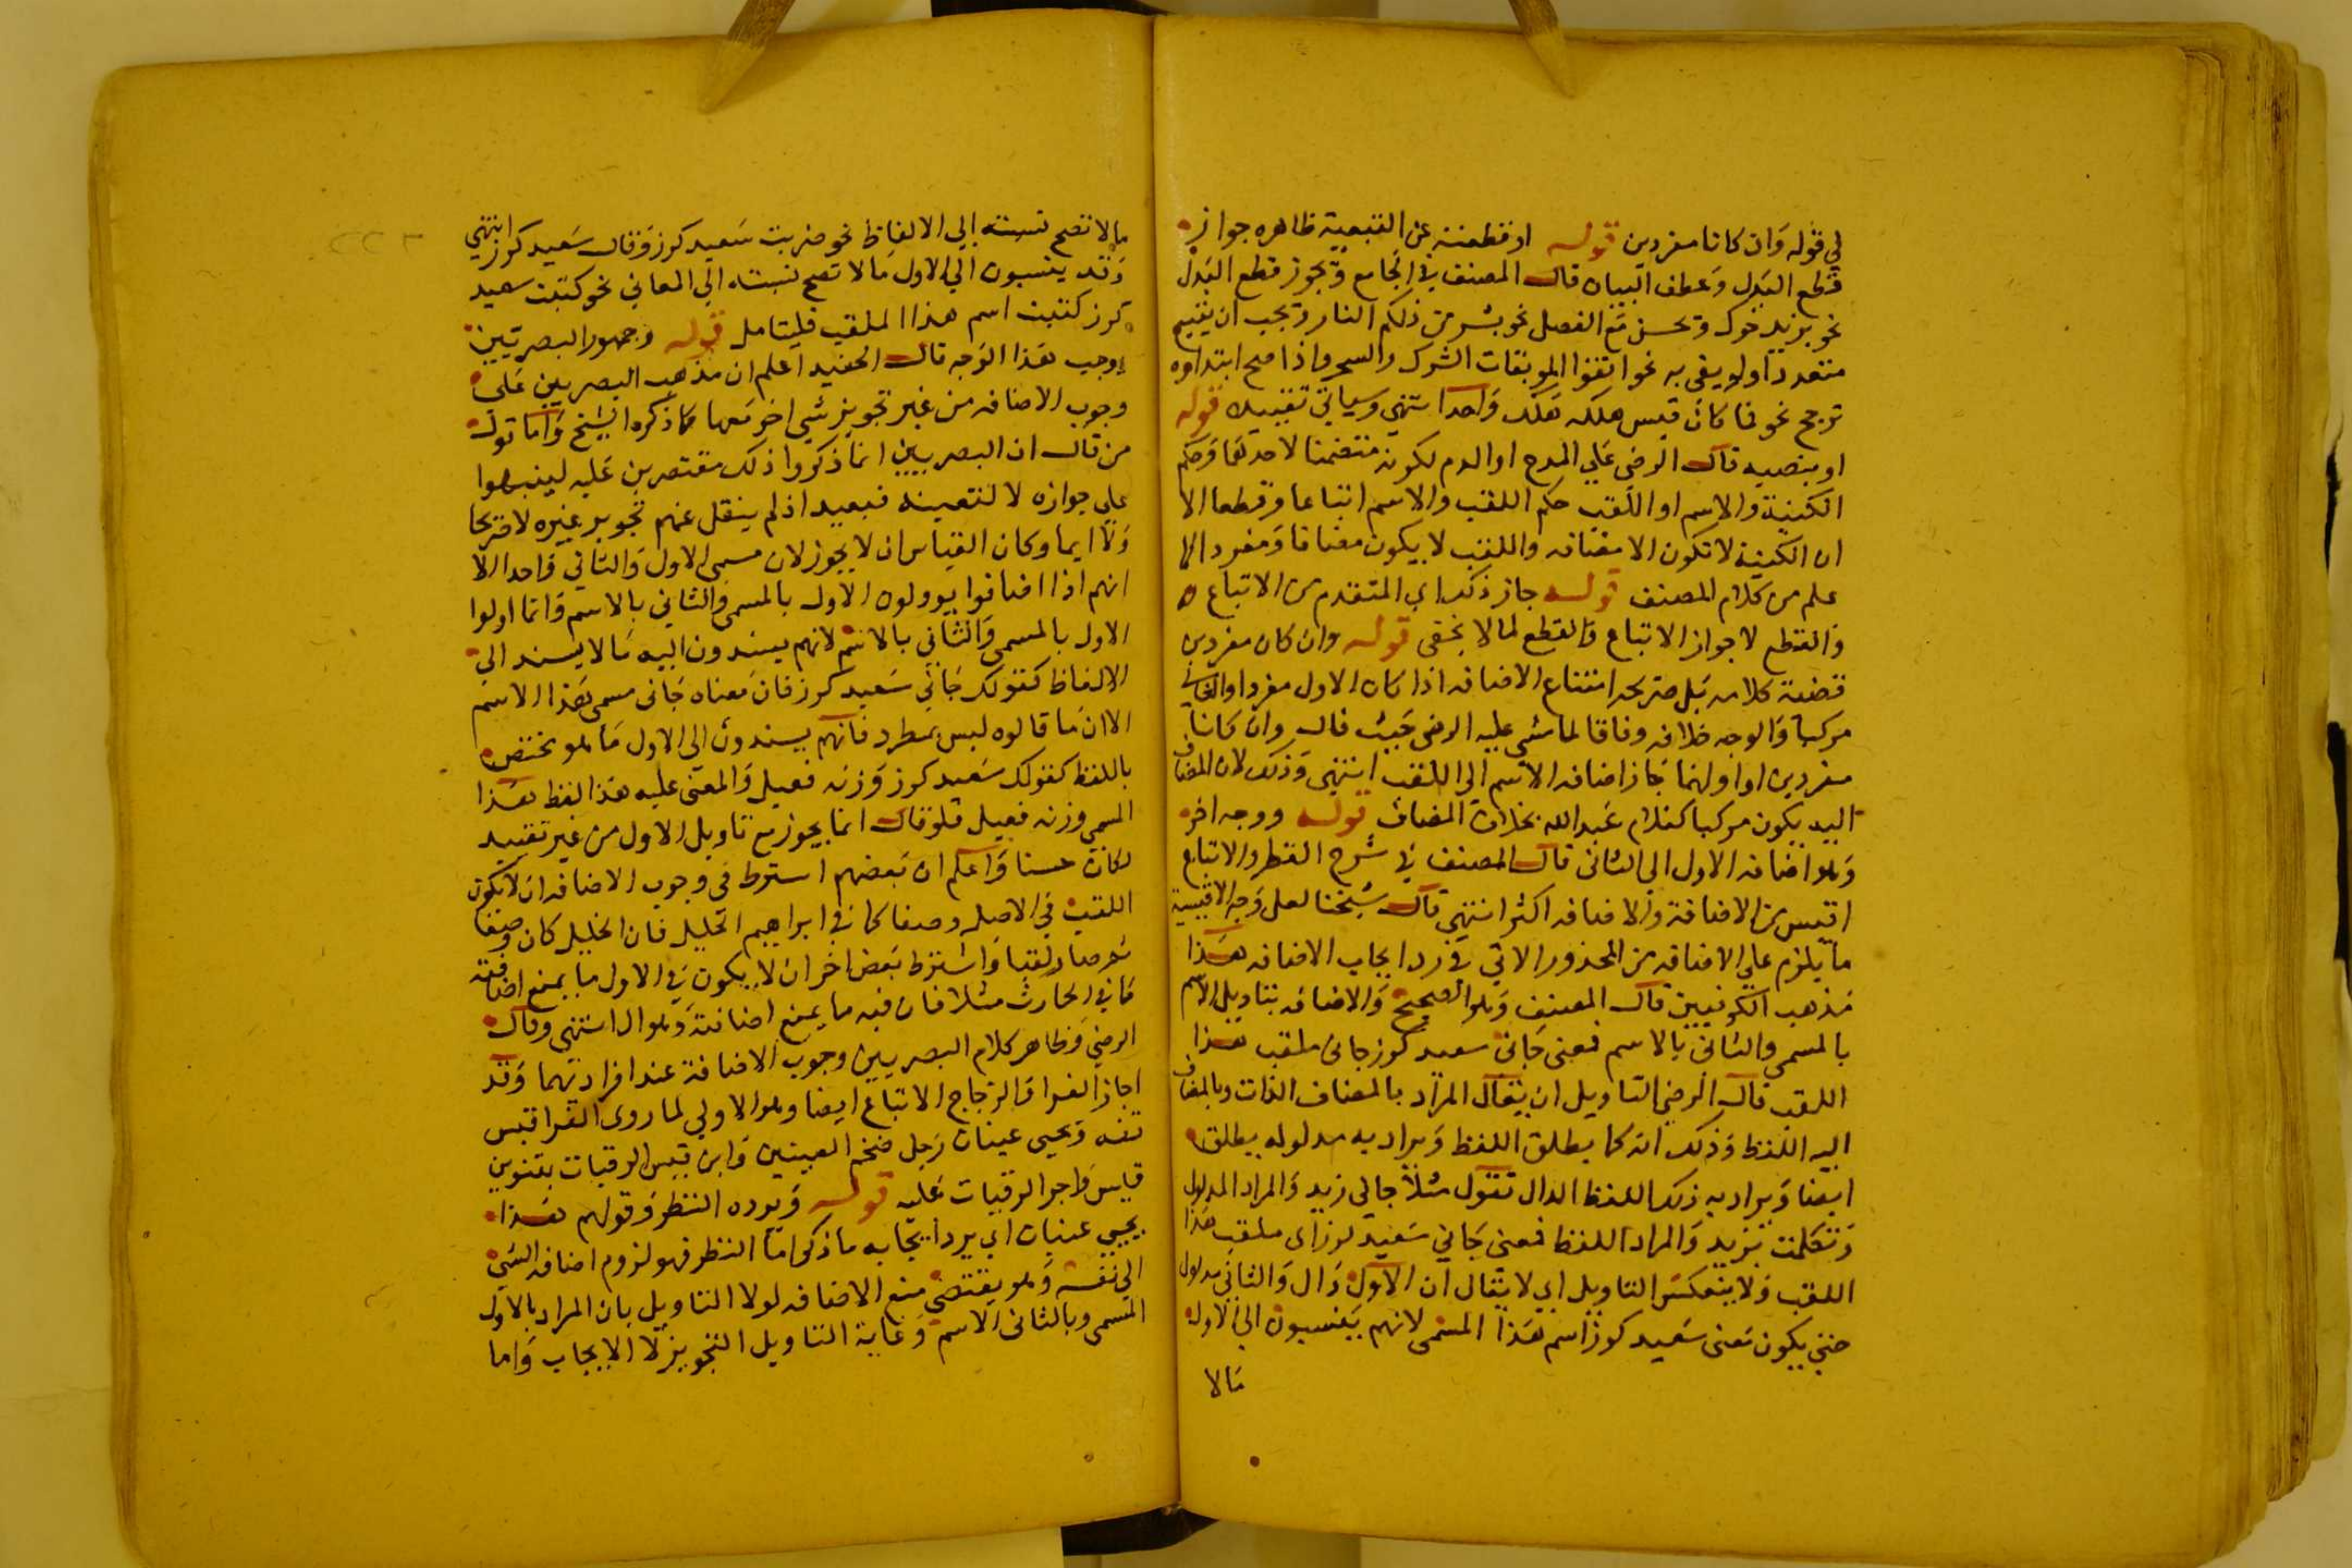 في قوله وان كانا مفردين قوله او قطعته عن التبعية ظاهره جواز
قطع البدل وعطف البيان قال المصنف في الجامع ويجوز قطع البدل
نحو بزيد خوك ويحسن مع الفصل نحو بشر من ذلكم النار ويجب ان يتبع
متعددا ولو يفى به نحو اتقوا الموبقات الشرك والسحر واذا صح ابتداوه
ترجح نحو فما كان قيس هلكه هلك واحدا انتهى وسياتي تقييده قوله
او بنصبه قال الرضى على المدح او الذم لكونه متضمنا لاحدهما وحكم
الكنية والاسم او اللقب حكم اللقب والاسم اتباعا وقطعا الا
ان الكنية لا تكون الا مضافه واللقب لا يكون مضافا ومفردا كما
علم من كلام المصنف قوله جاز ذلك اي المتقدم من الاتباع
والقطع لا جواز الاتباع والقطع لما لا يخفى قوله وان كان مفردين
قضية كلامه بل صريحه امتناع الاضافه اذا كان الاول مفردا والثاني
مركبا والوجه خلافه وفاقا لما مشى عليه الرضى حيث قال وان كانا
مفردين او اولهما جاز اضافه الاسم الى اللقب انتهى وذلك لان المضاف
اليه يكون مركبا كغلام عبد الله بخلاف المضاف قوله ووجه اخر
وهو اضافه الاول الى الثاني قال المصنف في شرح القطر والاتباع
اقيس من الاضافة والاضافه اكثر انتهى قال شيخنا لعل وجه الاقيسية
ما يلزم على الاضافه من المحذور الاتي في رد ايجاب الاضافه هذا
مذهب الكوفيين قال المصنف وهو الصحيح والاضافه بتاويل الاسم
بالمسمى والثاني بالاسم فمعنى جاني سعيد كرز جاني ملقب هذا
اللقب قال الرضي التاويل ان يقال المراد بالمضاف الذات وبالمضاف
اليه اللفظ وذلك انه كما يطلق اللفظ ويراد به مدلوله يطلق
ايضا ويراد به ذلك اللفظ الدال تقول مثلا جاني زيد والمراد المدلول
وتكلمت بزيد والمراد اللفظ فمعنى جاني سعيد كرز اى ملقب هذا
اللقب ولا ينعكس التاويل اي لا يقال ان الاول دال والثاني مدلول
حتى يكون معنى سعيد كرز اسم هذا المسمى لانهم ينسبون الى الاول
مالا
مالا تصح نسبته الى الالفاظ نحو ضربت سعيد كرز وقال سعيد كرز انتهى
وقد ينسبون الى الاول مالا تصح نسبته الى المعاني نحو كتبت سعيد
كرز كتبت اسم هذا الملقب فليتامل قوله وجمهور البصريين
يوجب هذا الوجه قال الحفيد اعلم ان مذهب البصريين على
وجوب الاضافه من غير تجويز شي اخر معها كما ذكره الشيخ واما قول
من قال ان البصريين انما ذكروا ذلك مقتصرين عليه لينبهوا
على جوازه لا لتعينه فبعيد اذ لم ينقل عنهم تجويز غيره لا صريحا
ولا ايما وكان القياس ان لا يجوز لان مسمى الاول والثاني واحد الا
انهم اذا اضافوا يوولون الاول بالمسمى والثاني بالاسم وانما اولوا
الاول بالمسمى والثاني بالاسم لانهم يسندون اليه مالا يسند الى
الالفاظ كقولك جاني سعيد كرز فان معناه جاني مسمى هذا الاسم
الا ان ما قالوه ليس بمطرد فانهم يسندون الى الاول ما هو مختص
باللفظ كقولك سعيد كرز وزنه فعيل والمعنى عليه هذا لفظ هذا
المسمى وزنه فعيل فلو قال انما يجوز مع تاويل الاول من غير تقييد
لكان حسنا واعلم ان بعضهم اشترط في وجوب الاضافه ان لا يكون
اللقب في الاصل وصفا كما في ابراهيم الخليل فان الخليل كان وصفا
ثم صار لقبا واشترط بعض اخر ان لا يكون في الاول ما يمنع اضافته
كما في الحارث مثلا فان فيه ما يمنع اضافته وهو ال انتهى وقال
الرضي وظاهر كلام البصريين وجوب الاضافة عند افراديهما وقد
اجاز الفرا والزجاج الاتباع ايضا وهو الاولى لما روى الفرا قيس
قفه ويحيى عينان رجل ضخم العينين وابن قيس الرقيات بتنوين
قيس واجرا الرقيات عليه قوله ويرده النظر وقولهم هذا
يحيى عينان اي يرد ايجابه ما ذكر اما النظر فهو لزوم اضافه الشي
الى نفسه وهو يقتضي منع الاضافه لولا التاويل بان المراد بالاول
المسمى وبالثاني الاسم وغاية التاويل التجويز لا الايجاب واما